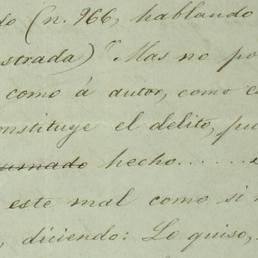 do (n. 966, hablando
strada) "Mas no po
como á autor, como c
onstituye el delito, pu
sumado hecho......e
este mal como si
, diciendo: Lo quiso,